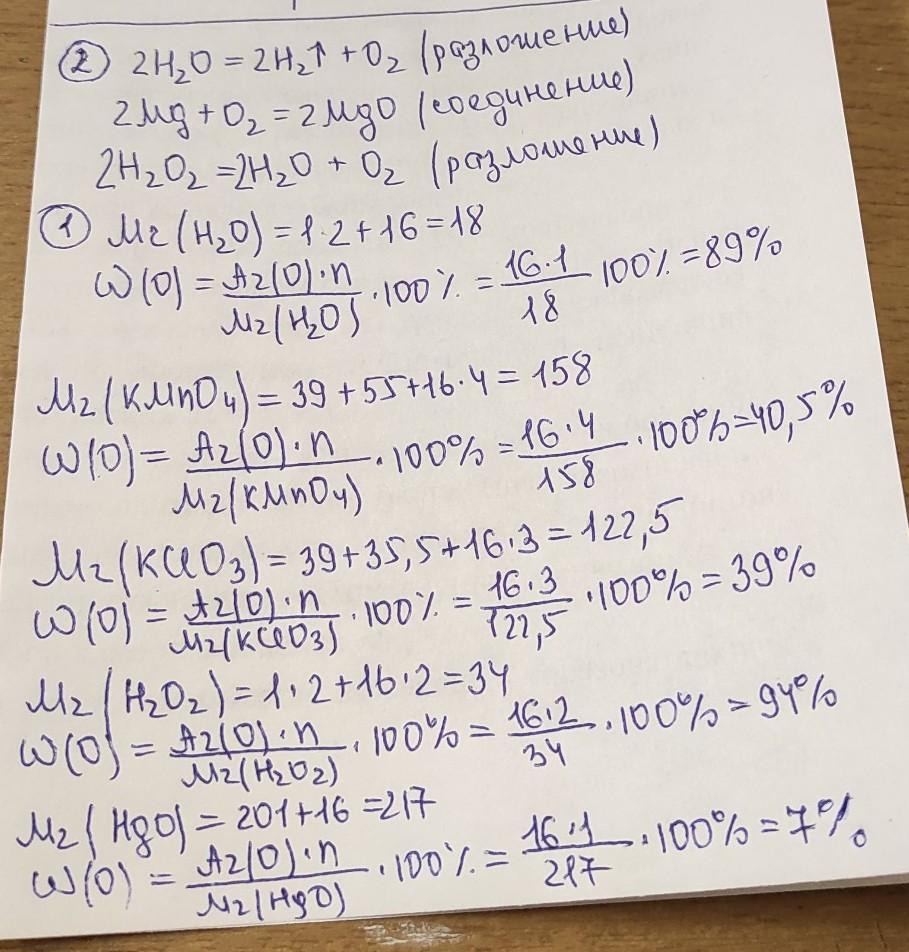 ② 2H₂O = 2H₂↑ + O₂ (разлошение)
2Mg + O₂ = 2MgO (соединение)
2H₂O₂ = 2H₂O + O₂ (разлошение)
① Mr(H₂O) = 1·2 + 16 = 18
W(O) = Ar(O)·n / Mr(H₂O) · 100% = 16·1 / 18 100% = 89%
Mr(KMnO₄) = 39 + 55 + 16·4 = 158
W(O) = Ar(O)·n / Mr(KMnO₄) · 100% = 16·4 / 158 · 100% = 40,5%
Mr(KClO₃) = 39 + 35,5 + 16·3 = 122,5
W(O) = Ar(O)·n / Mr(KClO₃) · 100% = 16·3 / 122,5 · 100% = 39%
Mr(H₂O₂) = 1·2 + 16·2 = 34
W(O) = Ar(O)·n / Mr(H₂O₂) · 100% = 16·2 / 34 · 100% = 94%
Mr(HgO) = 201 + 16 = 217
W(O) = Ar(O)·n / Mr(HgO) · 100% = 16·1 / 217 · 100% = 7%